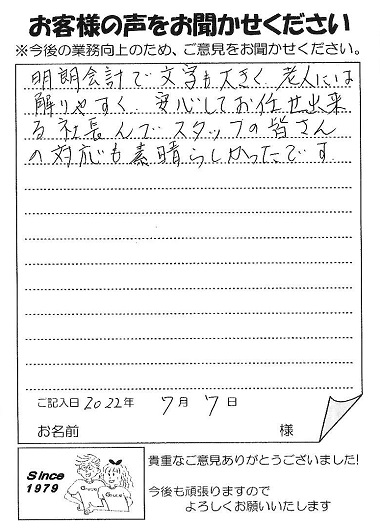 お客様の声をお聞かせください
※今後の業務向上のため、ご意見をお聞かせください。
明朗会計で文字も大きく 老人には
解りやすく 安心してお任せ出来
る社長んで スタッフの皆さん
の対応も素晴らしかったです
ご記入日 2022年 7月 7日
お名前 様
Since
1979
貴重なご意見ありがとうございました!
今後も頑張りますので
よろしくお願いいたします